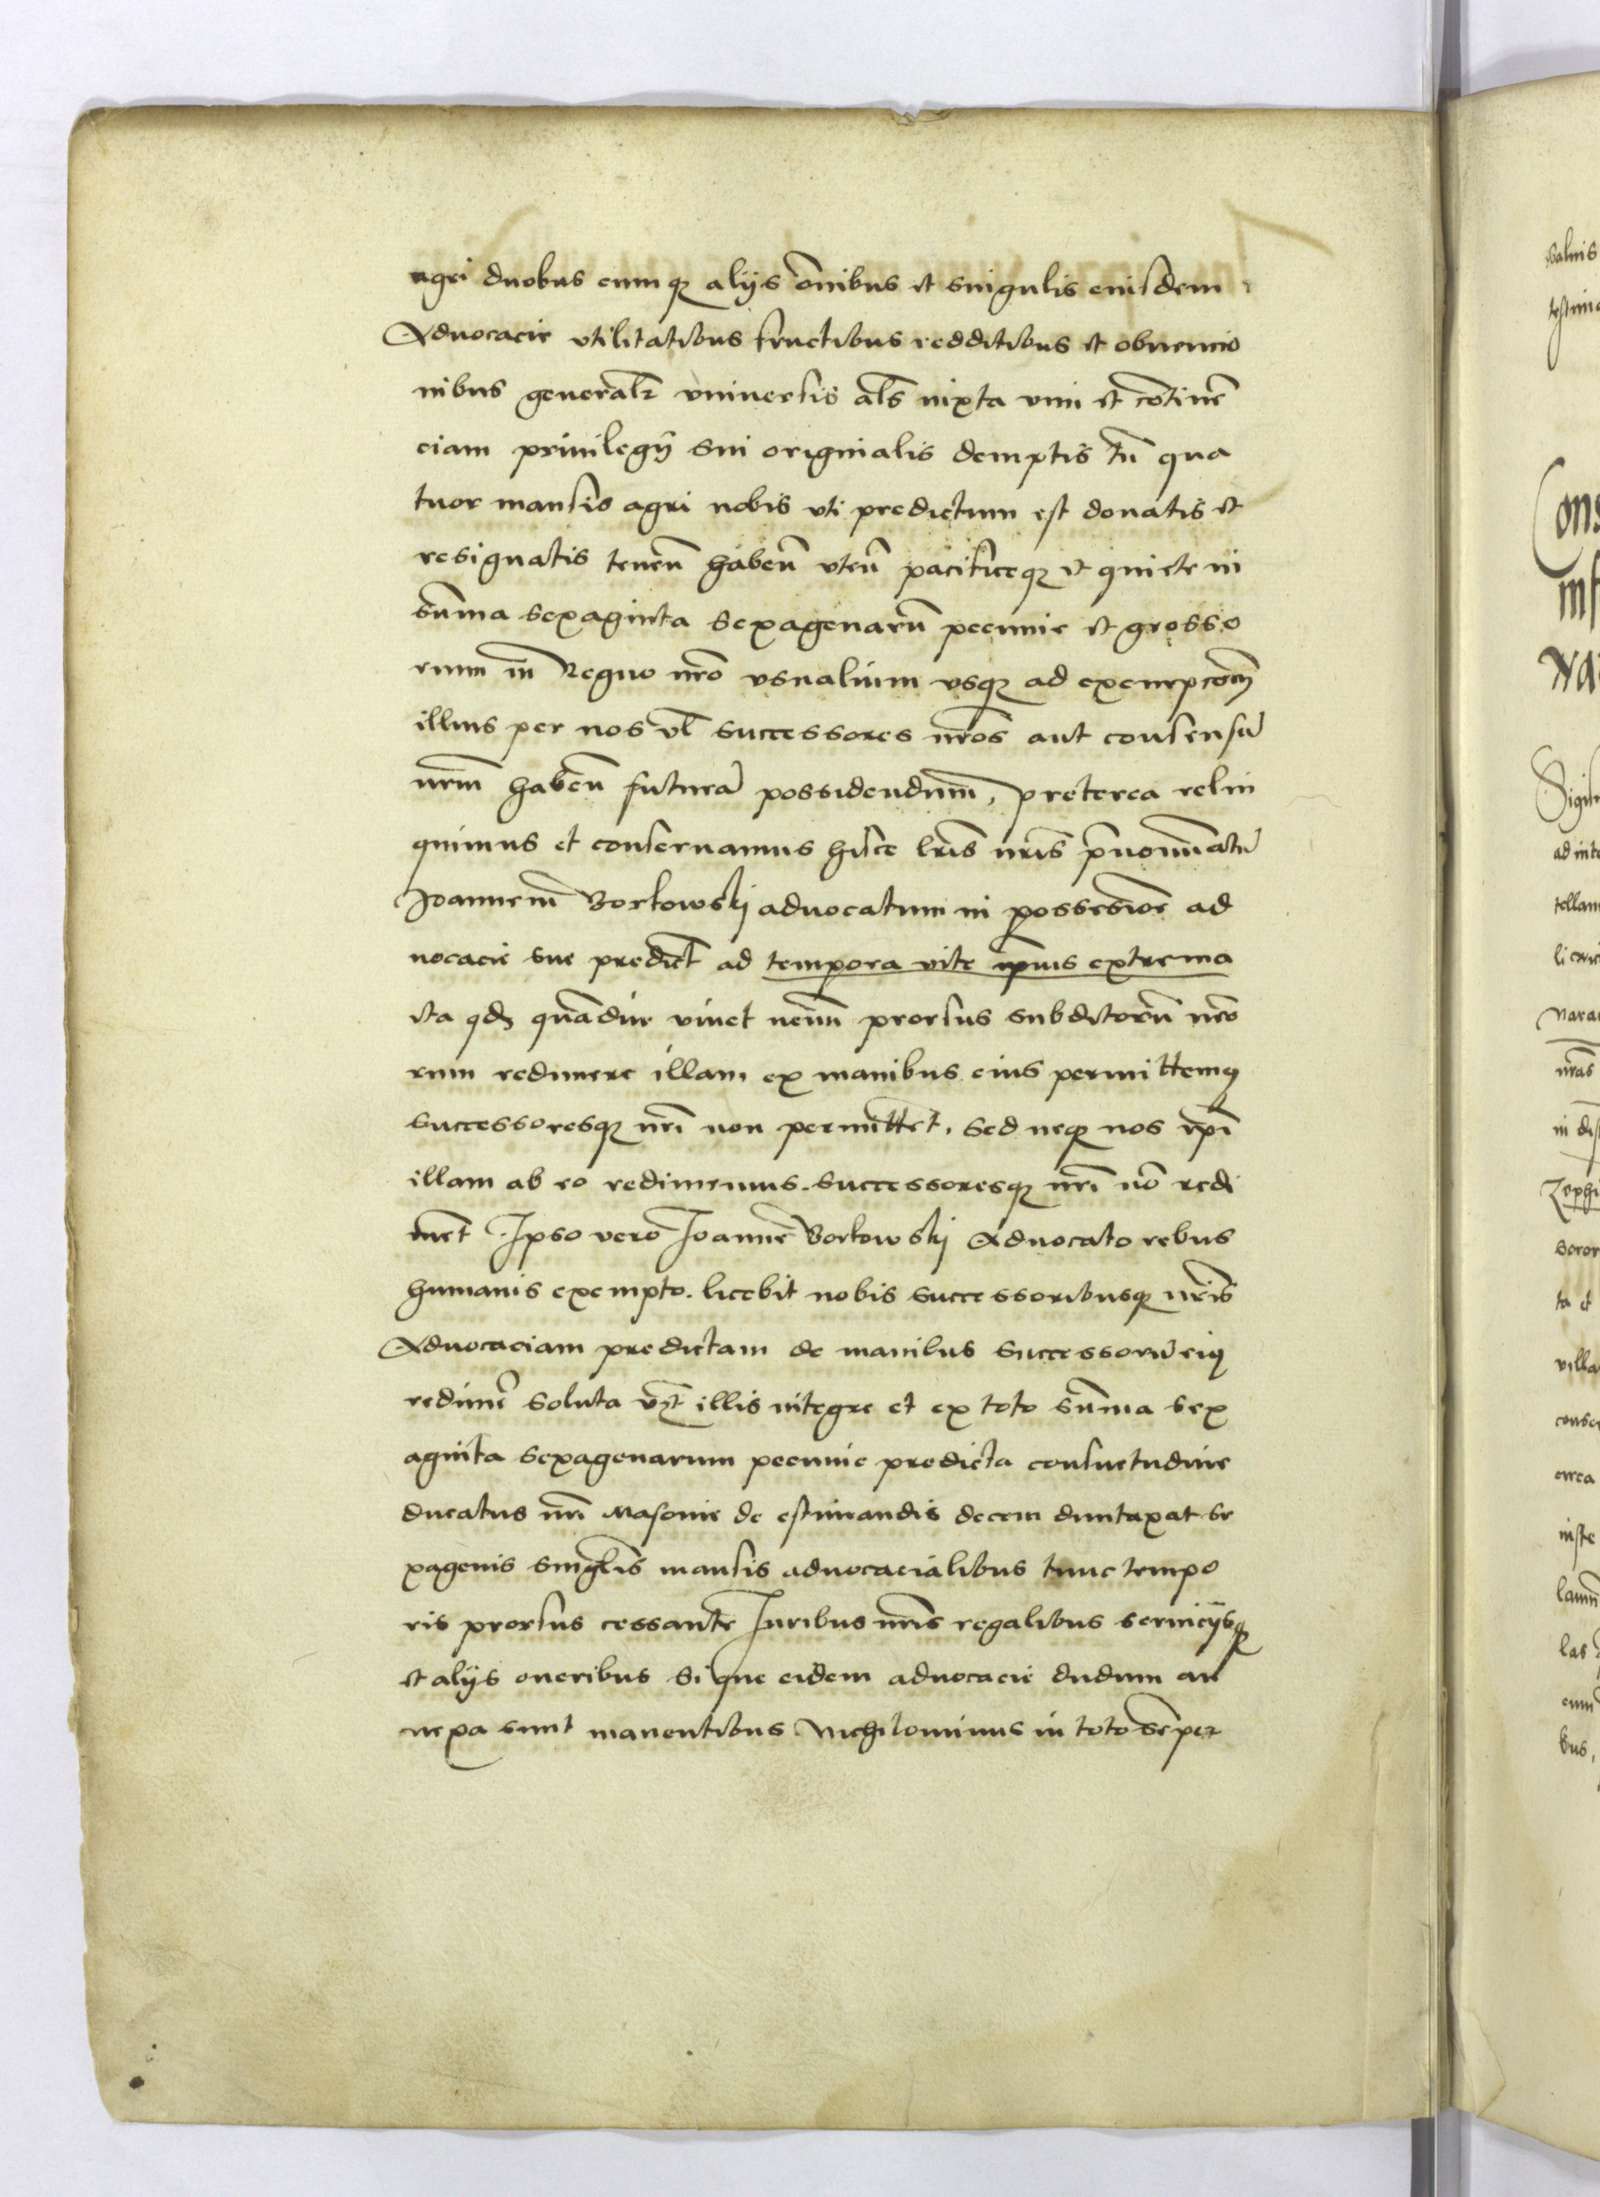 agri duobus cumq aliis oībus et singulis eiusdem
Aduocacie vtilitatibus fructibus redditibus et obuencio
nibus generalr vniuersis als iuxta vim et cōtinē
ciam priuilegij sui originalis demptis tn̄ qua
tuor mansis agri nobis vti predictum est donatis et
resignatis tenen̄ haben̄ vten̄ pacificeq et quiete in
sum̄a sexaginta sexagenarū pecunie et grosso
rum in Regno nr̄o vsualium vsq ad exempcōm̄
illius per nos vl̄ successores nr̄os aut consensū
nr̄m haben̄ futurā possidendum, Preterea relin
quimus et conseruamus hisce lr̄is nr̄is prenominatū
Joannem Borkowskij aduocatum in possessiōe ad
uocacie sue predict ad tempora vite ipius extrema
ita qd quādiu viuet nemīn prorsus subditorū nr̄o
rum redimere illam ex manibus eius permittemꝰ
successoresq nr̄i non permittēt. Sed neq nos ip̄i
illam ab eo redimemus. Successoresq nr̄i nō redi
ment. Ipso vero Joanne Borkowskij Aduocato rebus
humanis exempto. licebit nobis successoribusq nr̄is
Aduocaciam predictam de manibus successorū eiꝰ
redimē soluta vz̄t illis integre et ex toto sum̄a sex
aginta sexagenarum pecunie predicta consuetudine
ducatus nr̄i Masouie de estimandis decem duntaxat se
xagenis singlis mansis aduocacialibus tunc tempo
ris prorsus cessante Juribus nr̄is regalibus seruicijsq
et alijs oneribus si que eidem aduocacie dudum an
nexa sunt manentibus nichilominus in toto sēper